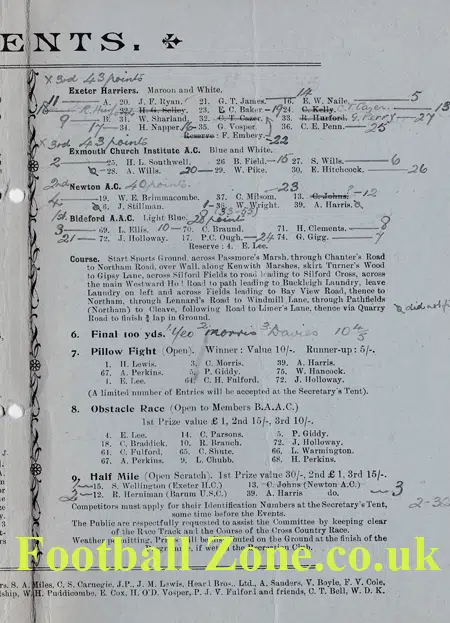 ENTS.
x 3rd 43 points
Exeter Harriers. Maroon and White. 14
11 — A. 20. J. F. Ryan. 21. G. T. James. 16. E. W. Naile. 5
22. H. G. Selley. 23. E. C. Baker -19 24. C. Kelly. C.T. Cazer. 13
9 — B. 31. W. Sharland. 32. C. T. Cazer. 33. R. Harford. G. Perry - 27
17 34. H. Napper. 16 35. G. Vosper. 36. C. E. Penn. - 25
Reserve : F. Embery. - 22
x 3rd 43 points
Exmouth Church Institute A.C. Blue and White.
2 — 25. H. L. Southwell. 26 B. Field. - 15 27. S. Wills. 6
28. A. Wills. 20 — 29. W. Pike. 30. E. Hitchcock. 26
2nd Newton A.C. 40 points. 23
4 — 19. W. E. Brimmacombe. 37. C. Milsom. 13. C. Johns? - 12
6. J. Stillman. 1 - 38. W. Wright. 39. A. Harris.
1st. Bideford A.A.C. Light Blue. 28 points
3 — 69. L. Ellis. 10 — 70. C. Braund. 71. H. Clements. 8
21 — 72. J. Holloway. 17. P.C. Ough. — 24 74. G. Gigg. — 7
Reserve : 4. E. Lee.
Course. Start Sports Ground, across Passmore's Marsh, through Chanter's Road
to Northam Road, over Wall, along Kenwith Marshes, skirt Turner's Wood
to Gipsy Lane, across Silford Fields to road leading to Silford Cross, across
the main Westward Ho! Road to path leading to Buckleigh Laundry, leave
Laundry on left and across Fields leading to Bay View Road, thence to
Northam, through Lennard's Road to Windmill Lane, through Pathfields
(Northam) to Cleave, following Road to Limer's Lane, thence via Quarry
Road to finish ¾ lap in Ground.
did not
6. Final 100 yds. Yeo 2 Morris 3 Davies 10 4/5
7. Pillow Fight (Open). Winner : Value 10/-. Runner-up : 5/-.
1. H. Lewis. 3. C. Morris. 39. A. Harris.
67. A. Perkins. 5. P. Giddy. 75. W. Hancock.
1. E. Lee. 64. C. H. Fulford. 72. J. Holloway.
(A limited number of Entries will be accepted at the Secretary's Tent).
8. Obstacle Race (Open to Members B.A.A.C.)
1st Prize value £1, 2nd 15/-, 3rd 10/-.
4. E. Lee. 14. C. Parsons. 5. P. Giddy.
18. C. Braddick. 10. R. Branch. 72. J. Holloway.
64. C. Fulford. 65. C. Shute. 66. L. Warmington.
67. A. Perkins. 9. L. Chubb. 68. H. Perkins.
9. Half Mile (Open Scratch). 1st Prize value 30/-, 2nd £1, 3rd 15/-.
15. S. Wellington (Exeter H.C.) 13. C. Johns (Newton A.C.)
2 — 12. R. Herniman (Barum U.S.C.) 39. A. Harris do. — 3
2-3
Competitors must apply for their Identification Numbers at the Secretary's Tent,
some time before the Events.
The Public are respectfully requested to assist the Committee by keeping clear
of the Race Track and the Course of the Cross Country Race.
Weather permitting, on the Ground at the finish of the
Football Zone.co.uk
rs. S. A. Miles, C. S. Carnegie, J.P., J. M. Lewis, Heard Bros., Ltd., A. Sanders, V. Boyle, F. V. Cole,
dship, W. H. Puddicombe, E. Cox, H. O'D. Vosper, P. J. V. Fulford and friends, C. T. Bell, W. D. K.